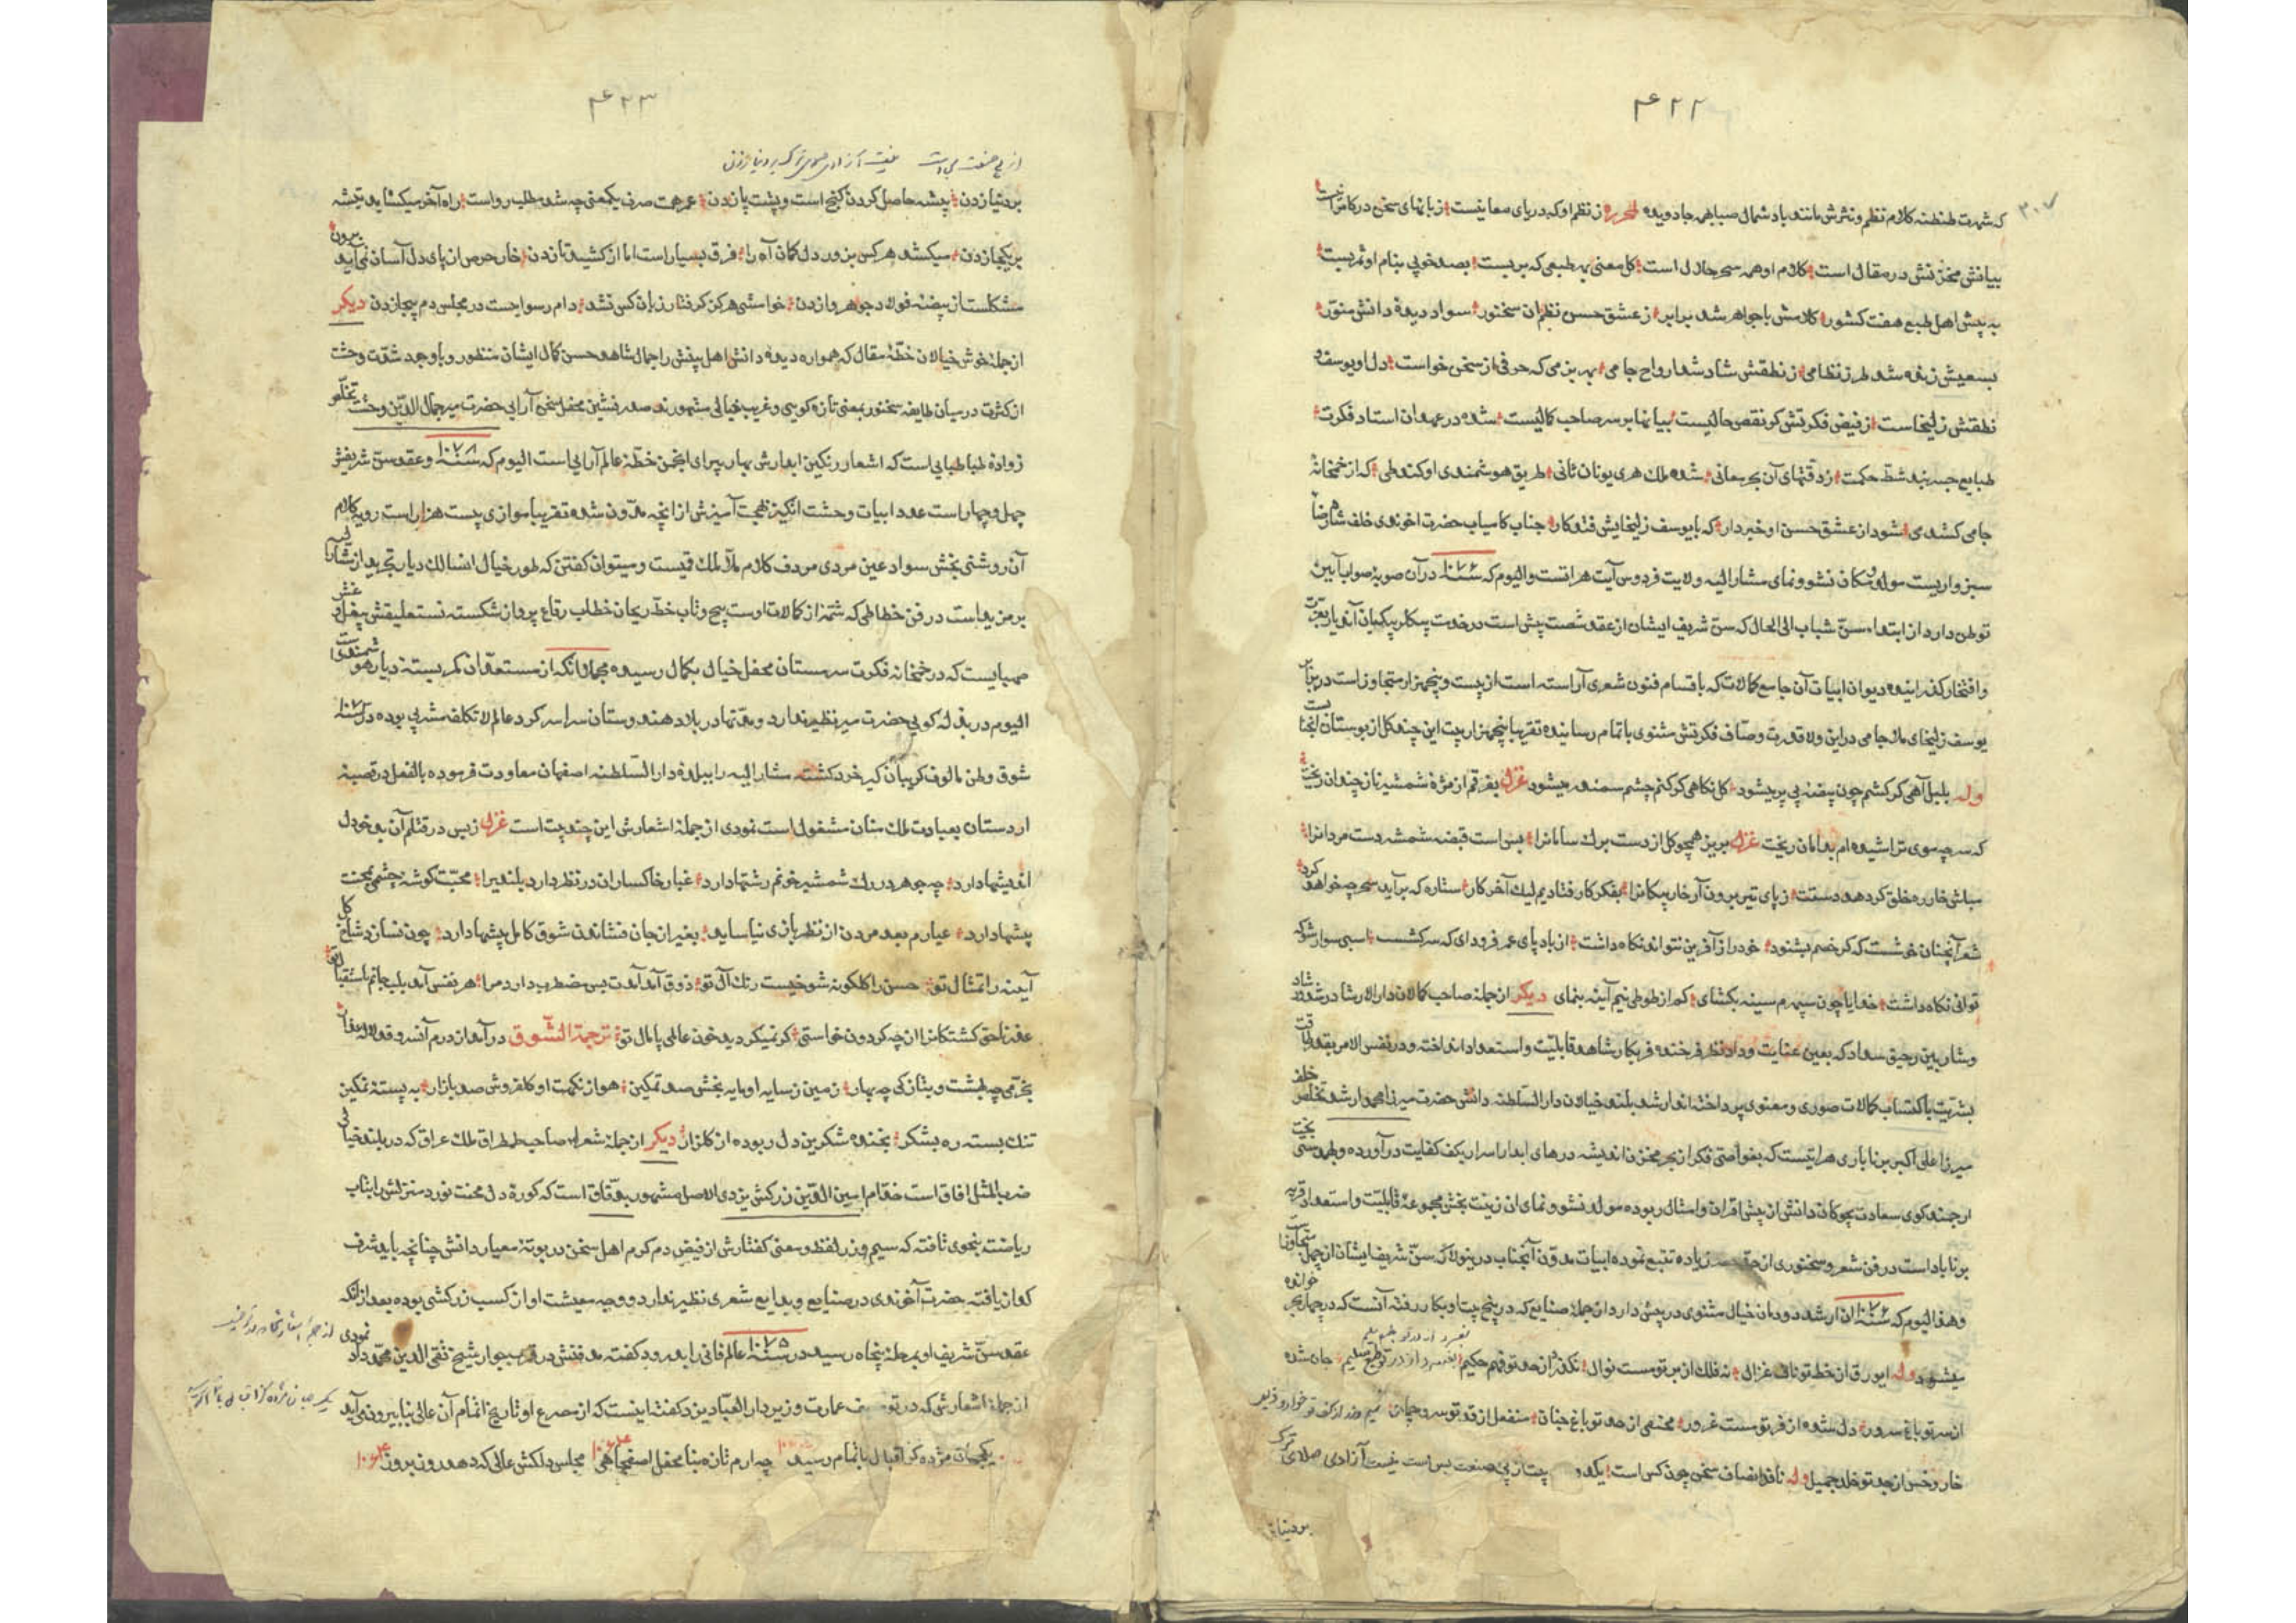 ۴۲۲
۳۰۷
که شهرت طنطنه کلام نظم و نثرش مانند باد شمال صبا بهمه جا دویده لمحرره ز نظم او که دریای معانیست زبانهای سخن در کام
بیانش مخزنش در مقال است کلام او همه سحر حلال است کل معنی بهر طبعی که بر بست بصد خوبی بنام او ثمر بست
به پیش اهل طبع هفت کشور کلامش با جواهر شد برابر ز عشق حسن نظم ان سخنور سواد دیده دانش منور
بسعیش زنده شد طرز نظامی ز نطقش شاد شد ارواح جامی بهر بزمی که حرفی از سخن خواست دل او یوسف
نطقش زلیخاست از فیض فکرتش کر نقص حالیست بیانها بر سر صاحب کمالیست شده در عهد ان استاد فکرت
طبایع جسر بند شط حکمت ز دقتهای آن بحر معانی شده ملک هری یونان ثانی طریق هوشمندی او کند طی که از خمخانه
جامی کشد می شود از عشق حسن او خبردار که با یوسف زلیخایش فتد کار جناب کامیاب حضرت اخوندی خلف شاه رضا
سبزواریست مولد و مکان نشو و نمای مشار الیه ولایت فردوس آیت هراتست و الیوم که سنه ۱۰۷۶ در آن صوبه صواب آیین
توطن دارد از ابتداء سن شباب الی الحال که سن شریف ایشان از عقد شصت پیش است در خدمت بیکلربیکیان آندیار بعزت
و افتخار کذرانیده دیوان ابیات آن جامع کمالات که باقسام فنون شعری آراسته است از بیست و پنجهزار متجاوز است در برابر
یوسف زلیخای ملا جامی در این ولا قدرت وصاف فکرتش مثنوی باتمام رسانیده تقریبا پنجهزار بیت این چند کل از بوستان
وله بلبل آهی کر کشم چون بیضه بی پر میشود کل نکاهی کر کنم چشم سمندر میشود غزل بفرقم از مژه شمشیر ناز چندان ریخت
که سر چه موی تراشیده ام بدامان ریخت غزل بریز همچو کل از دست برک سامانرا بس است قبضه شمشیر دست مردانرا
مباش خار ره خلق کر دهد دستت ز پای تیر برون آر خار پیکانرا بفکر کار فتادیم لیک آخر کار ستاره که برآید سحر چه خواهد کرد
شعر آنچنان خوشست که کر خصم بشنود خود را ز آفرین نتواند نکاه داشت از باد پای عمر فرود ای که سرکشست اسبی سوار شو که
توانی نکاه داشت خدایا چون سپهرم سینه بکشای کم از طوطی نیم آینه بنمای دیکر از جمله صاحب کمالات دار الارشاد
و شاربین رحیق سداد که بعین عنایت و داد نظر فرخنده فر بکار شاهد قابلیت و استعداد انداخته و در نفس الامر بقدر طاقت
بشریت باکتساب کمالات صوری و معنوی پرداخته اند ارشد بلند خیالان دار السلطنه دانش حضرت میرزا محمد ارشد تخلص خلف
میرزا علی اکبر برناباری هراتیست که بغواصی فکر از بحر مخزن اندیشه درهای ابدار اسرار بکف کفایت در آورده
ارجمند کوی سعادت بچوکان دانش از پیش اقران و امثال ربوده مولد و نشو و نمای ان زینت بخش مجموعه قابلیت و استعداد قریه
برناباد است در فن شعر و سخنوری از حد زیاده تتبع نموده ابیات مدون آنجناب درینولا که سن شریف ایشان از چهل متجاوز
و هذا الیوم که سنه ۱۰۷۶ ان ارشد دودمان خیال مثنوی در پیش دارد از جمله صنایع که در پنج بیت او بکار رفته آنست که در چهار بحر خوانده
میشود وله ای ورق از خط تو ناف غزال نه فلک از بر تو مست نوال نکذرد از حد تو فهم حکیم جان شده
از سر تو باغ سرور دل شده از فر تو مست غرور مختفی از خد تو باغ جنان منفعل از قد تو سرو چمان
خار و خس از جد تو خلد جمیل وله ناقد انصاف سخن چون کس است یکدو بیت از پی صنعت بس است نیست آزادی صلای ترک
بر دنیا
۴۲۳
از پی صنعت بس است نیست آزادی صلای ترک بر دنیا زدن
بر دنیا زدن پیشه حاصل کردن کنج است و پشت پا زدن عمر هست صرف یکمعنی چه شد مطلب رواست راه آخر میکشاید تیشه
بر یکجا زدن میکشد هر کس بزور دل کمان آه را فرق بسیار است اما از کشید تا زدن خار حرص از پای دل آسان نمی آید برون
مشکلست از بیضه فولاد جوهر وا زدن خواستی هرکز کرفتار زبان کس نشد دام رسواییست در مجلس دم بیجا زدن دیکر
از جمله خوش خیالان خطه مقال که همواره دیده دانش اهل بینش را جمال شاهد حسن کمال ایشان منظور و با وجود شدت وحشت
از کثرت در میان طایفه سخنور بمعنی تازه کویی و غریب خیالی مشهورند صدر نشین محفل سخن آرایی حضرت میر جمال الدین وحشت تخلص
زواده طباطبایی است که اشعار رنکین ابدارش بهار پیرای انجمن خطه عالم آرایی است الیوم که سنه ۱۰۷۸ و عقد سن شریفش
چهل و چهار است عدد ابیات وحشت انکیز بهجت آمیزش از انچه مدون شده تقریبا موازی بیست هزار است رویه کلام
آن روشنی بخش سواد عین مردمی مردف کلام ملا ملک قمیست و میتوان کفتن که طور خیال انسالک دیار تجرید از
بر مزید است در فن خطاطی که شمه از کمالات اوست پیچ و تاب خط ریحان خطاب رقاع پرواز شکسته نستعلیقش
صهبایست که در خمخانه فکرت سرمستان محفل خیال بکمال رسیده مجملا انکه از مستعدان کمر بسته دیار هوشمندی
الیوم در بذله کویی حضرت میر نظیر ندارد و مدتها در بلاد هندوستان سراسر کرد عالم لا تکلف مشربی بوده در سنه
شوق وطن مالوف کریبان کیر خرد کشته مشار الیه را ببلده دار السلطنه اصفهان معاودت فرموده بالفعل در قصبه
اردستان بعبادت ملک منان مشغول است نمودی از جمله اشعارش این چند بیت است غزل ز بس در قتلم آن بدخو دل
اندیشها دارد چه جوهر در رک شمشیر خونم ریشها دارد غبار خاکساران در نظر دارد بلندیرا محبت کوشه چشمی بمحنت
پیشها دارد عیارم بعد مردن از نظر بازی نیاساید بغیر از جان فشاندن شوق کامل پیشها دارد چون نسازد شاخ کل
آینه را تمثال تو حسن را کلکونه شوخیست رنک آل تو ذوق آمد آمدت بس مضطرب دارد مرا هر نفس آید بلب جانم باستقبال
عذر ناحق کشتکانرا از چه کردون خواستی کر نمیکردید خون عالمی پامال تو ترجمة الشوق در آمد از درم آنسرو قد لاله عذار
بخرمی چه بهشت و بتازکی چه بهار زمین ز سایه او مایه بخش صد تمکین هوا ز نکهت او کلفروش صد بازار به پسته نمکین
تنک بسته ره بشکر بخنده شکرین دل ربوده از کلزار دیکر از جمله شعراء صاحب طمطراق ملک عراق که در بلند خیالی
ضرب المثل افاق است خدام امین الدین زرکش یزدی الاصل مشهور بدقاق است که کوره دل محنت نورد منزلش را بتاب
ریاضت بنحوی تافته که سیم و زر لفظ و معنی کفتارش از فیض دم کرم اهل سخن در بوته معیار دانش چنانچه باید شرف
کداز یافته حضرت آخوندی در صنایع و بدایع شعری نظیر ندارد و وجه معیشت او از کسب زرکشی بوده بعد از انکه
عقد سن شریف او بمرحله پنجاه رسید در سنه ۱۰۷۵ عالم فانی را بدرود کفته مدفنش در قم بجوار شیخ تقی الدین محمد دادا نمودی
از جمله اشعارش که در توصیف عمارت وزیر دار العباد یزد کفته اینست که از هر مصرع او تاریخ اتمام آن عالی بنا بیرون می آید
یکجهان مژده کز اقبال باتمام رسید چه ارم تازه بنا محفل اصفجاهی ۱۰۶۴ مجلس دلکش عالی که دهد روز بروز ۱۰۶۴